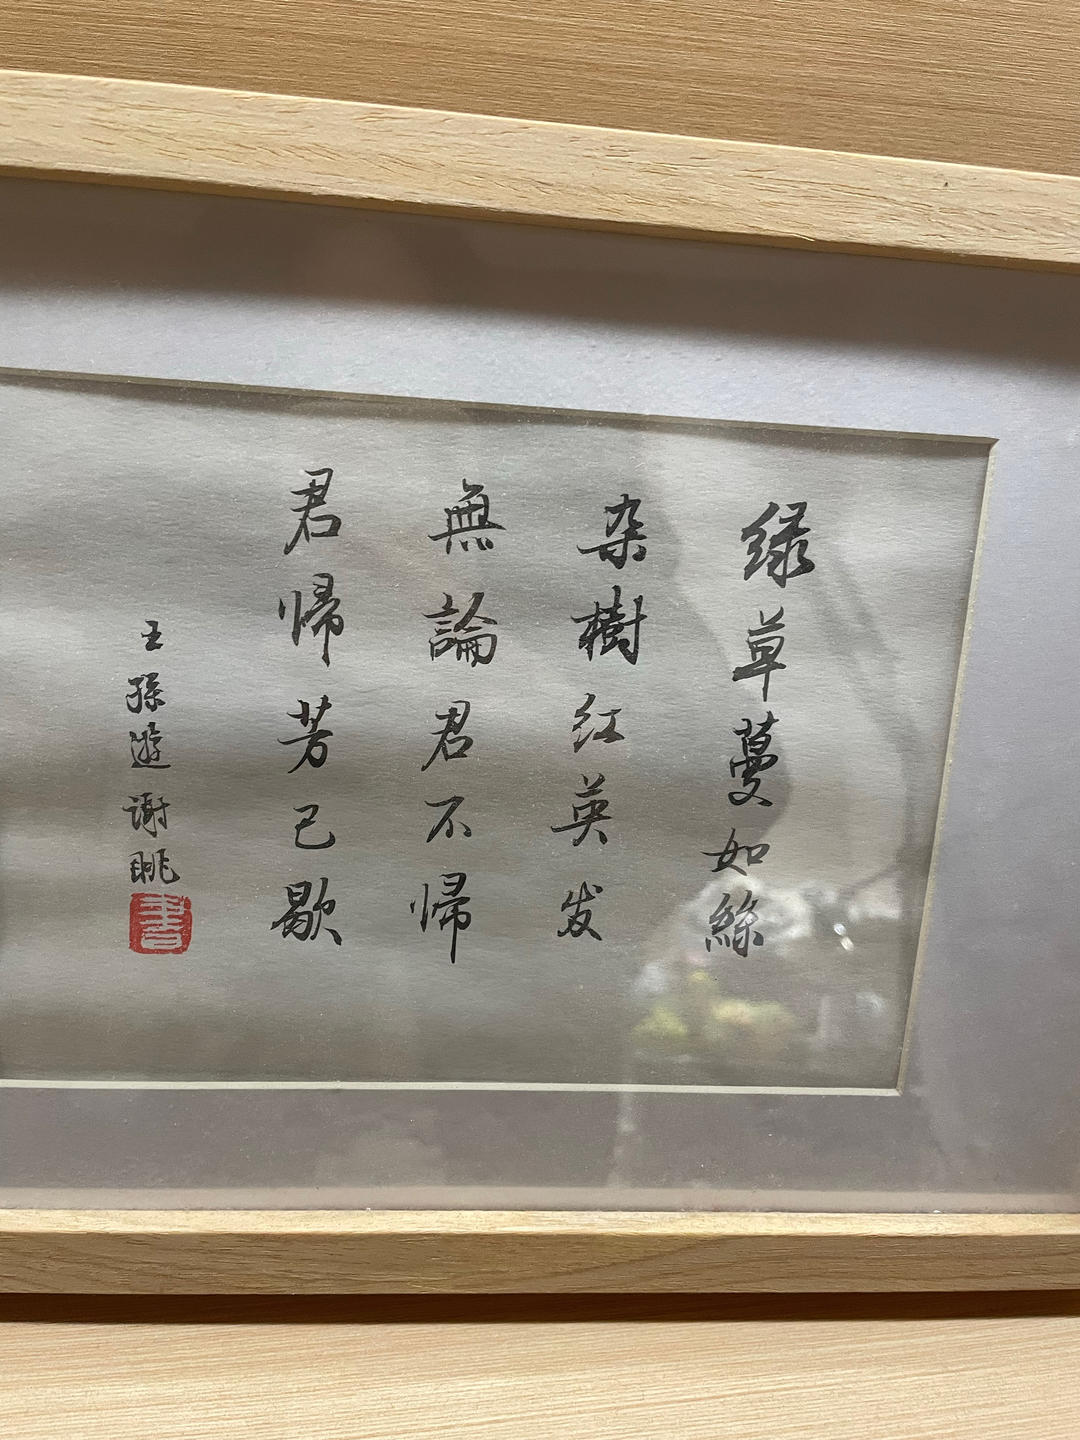 绿草蔓如絲
杂樹红英发
無論君不帰
君帰芳已歇
王孫遊 谢朓
書